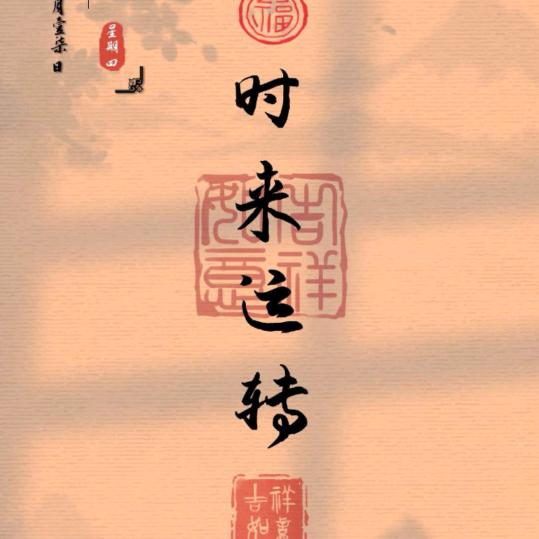 月壹柒日
星期四
福
时来运转
吉祥如意
吉祥如意